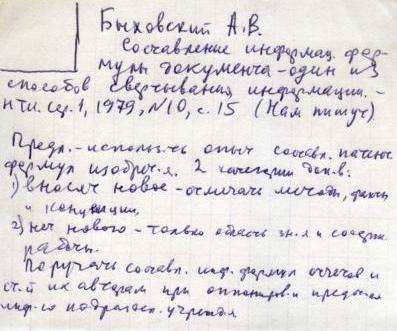 Быховский А.В.
Составление информац. фор-
мулы документа - один из
способов свертывания информации. -
НТИ. Сер. 1, 1979, №10, с. 15 (Нам пишут)
Предл. - использ-ть опыт составл. патентн.
формул изобрет-я. 2 категории док-в:
1) вносят новое - отмечать методы, факты
и концепции,
2) нет нового - только область зн-я и содерж.
работы.
Поручать составл. инф. формул отчетов и
ст-й их авторам при